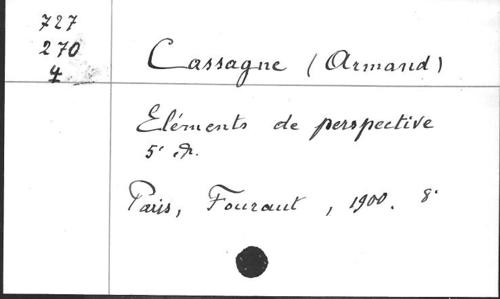 727
270
4
Cassagne (Armand)
Eléments de perspective
5ᵉ éd.
Paris, Fouraut, 1900. 8°